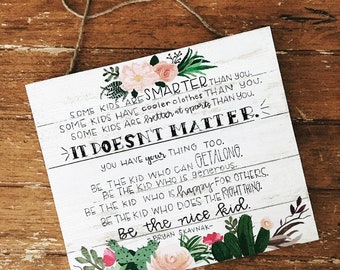 SOME KIDS ARE SMARTER THAN YOU.
SOME KIDS HAVE cooler clothes THAN YOU.
SOME KIDS ARE better at sports THAN YOU.
IT DOESN'T MATTER.
YOU HAVE your THING TOO.
BE THE KID WHO CAN GET ALONG.
BE THE KID WHO IS generous.
BE THE KID WHO IS happy FOR OTHERS.
BE THE KID WHO DOES THE RIGHT THING.
Be the nice kid.
BRYAN SKAVNAK